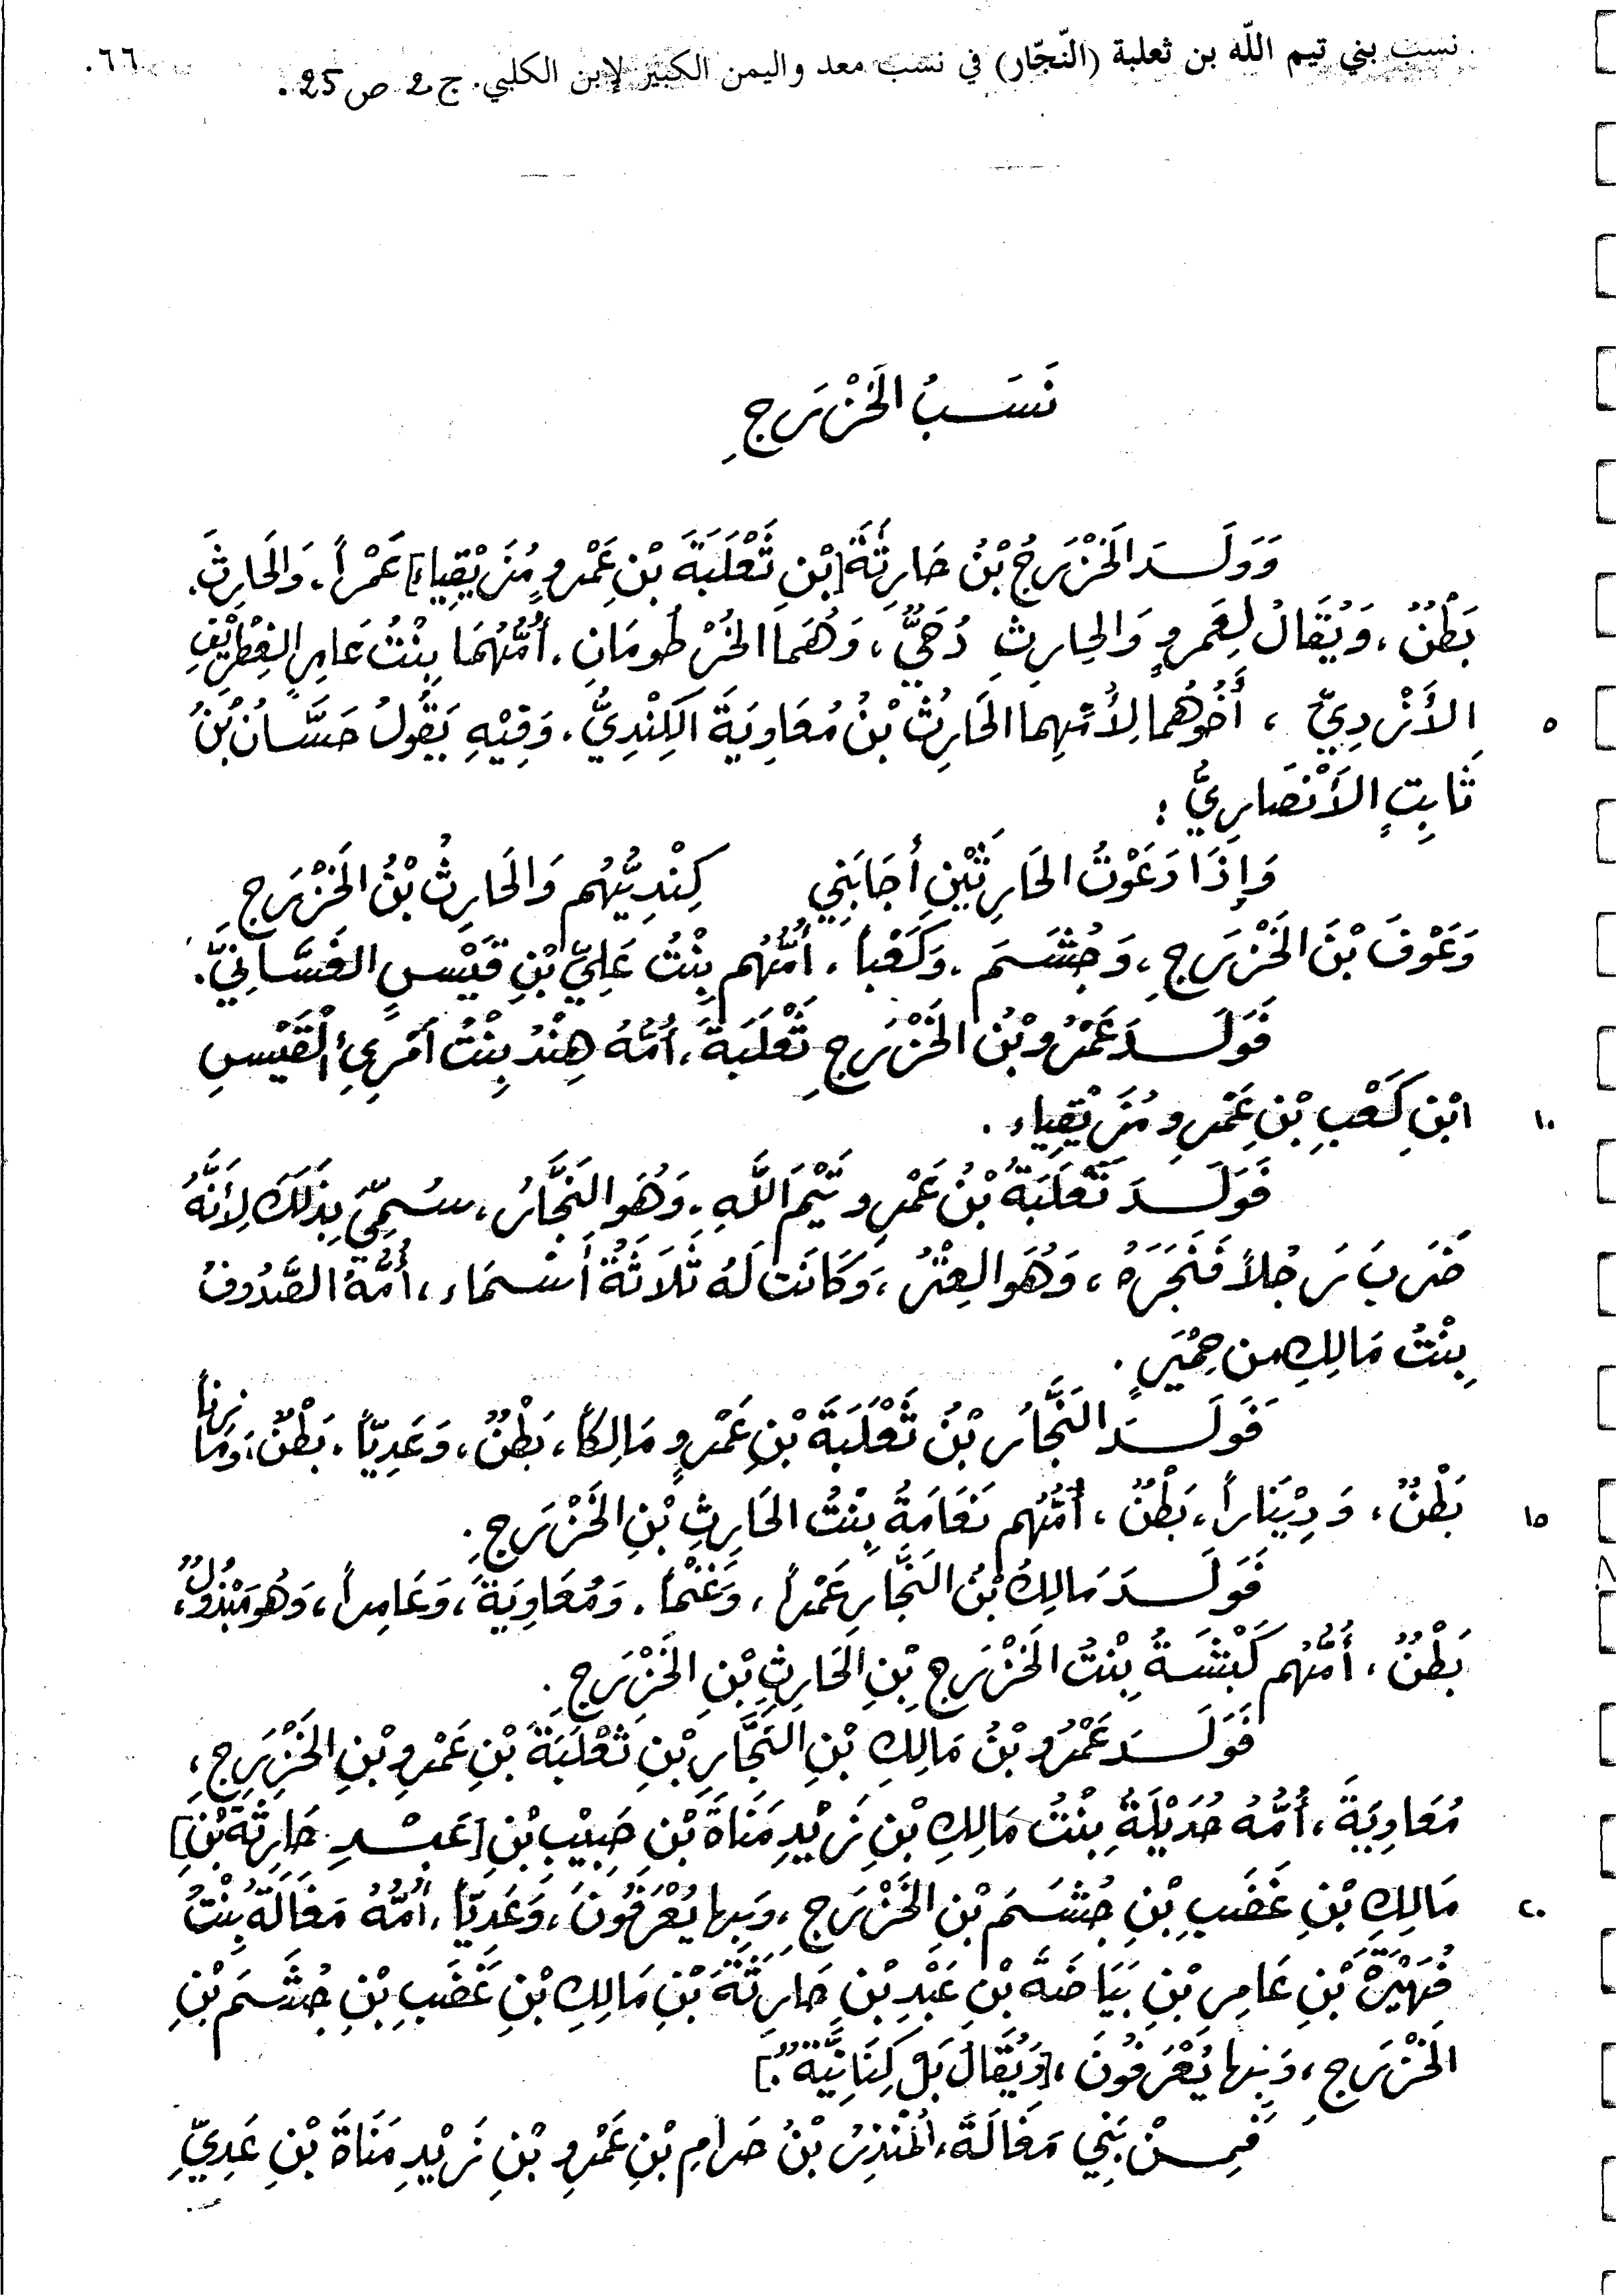 نسب بني تيم اللّه بن ثعلبة (النّجّار) في نسب معد واليمن الكبير لإبن الكلبي. ج 2 ص 25.
٦٦.
نَسَبُ الخَزْرَجِ
وَوَلَدَ الخَزْرَجُ بْنُ حَارِثَةَ [بْنِ ثَعْلَبَةَ بْنِ عَمْرٍو مُزَيْقِياء] عَمْراً، وَالحَارِثَ.
بَطْنٌ، وَيُقَالُ لِعَمرٍو وَالحِارِثِ دُحَيٌّ، وَهُمَا الخُرْطُومَانِ، أُمُّهُمَا بِنْتُ عَامِرٍ الغِطْرِيْفِ
٥
الأَزْدِيِّ، أَخُوهُما لِأُمِّهِما الحَارِثُ بْنُ مُعَاوِيَةَ الكِنْدِيُّ. وَفِيْهِ يَقُولُ حَسَّانُ بْنُ
ثَابِتٍ الأَنْصَارِيُّ:
وَإِذَا دَعَوْتُ الحَارِثَيْنِ أَجَابَنِي كِنْدِيُّهُم وَالحَارِثُ بْنُ الخَزْرَجِ
وَعَوْفَ بْنَ الخَزْرَجِ، وَجُشَمَ، وَكَعْباً، أُمُّهُم بِنْتُ عَلِيِّ بْنِ قَيْسٍ الغَسَّانِيِّ.
فَوَلَدَ عَمْرُو بْنُ الخَزْرَجِ ثَعْلَبَةَ، أُمُّهُ هِنْدُ بِنْتُ امْرِئِ الْقَيْسِ
١٠
ابْنِ كَعْبِ بْنِ عَمْرِو مُزَيْقِياء.
فَوَلَدَ ثَعْلَبَةُ بْنُ عَمْرِو تَيْمَ اللَّهِ، وَهُوَ النَّجَّارُ، سُمِّيَ بِذَلَكَ لِأَنَّهُ
ضَرَبَ رَجُلاً فَنَجَرَهُ، وَهُوَ العِتْرُ، وَكَانَت لَهُ ثَلَاثَةُ أَسْمَاء، أُمُّهُ الصَّدُوفُ
بِنْتُ مَالِكِ من حِمْيَرٍ.
فَوَلَدَ النَّجَّارُ بْنُ ثَعْلَبَةَ بْنِ عَمْرٍو مَالِكاً، بَطْنٌ، وَعَدِيّاً، بَطْنٌ، وَمَازِناً
١٥
بَطْنٌ، وَدِيْنَاراً، بَطْنٌ، أُمُّهُم نَعَامَةُ بِنْتُ الحَارِثِ بْنِ الخَزْرَجِ.
فَوَلَدَ مَالِكُ بْنُ النَّجَّارِ عَمْراً، وَغَنْماً، وَمُعَاوِيَةَ، وَعَامِراً، وَهُوَ مَبْذُولٌ،
بَطْنٌ، أُمُّهُم كَبْشَةُ بِنْتُ الخَزْرَجِ بْنِ الحَارِثِ بْنِ الخَزْرَجِ.
فَوَلَدَ عَمْرُو بْنُ مَالِكِ بْنِ النَّجَّارِ بْنِ ثَعْلَبَةَ بْنِ عَمْرِو بْنِ الخَزْرَجِ،
مُعَاوِيَةَ، أُمُّهُ حُدَيْلَةُ بِنْتُ مَالِكِ بْنِ زَيْدِ مَنَاةَ بْنِ حَبِيْبِ بْنِ [عَبْدِ حَارِثَةَ بْنِ]
٢٠
مَالِكِ بْنِ غَضَبِ بْنِ جُشَمَ بْنِ الخَزْرَجِ، وَبِها يُعْرَفُونَ، وَعَدِيّاً، أُمُّهُ مَغَالَةُ بِنْتُ
فُهَيْرَةَ بْنِ عَامِرِ بْنِ بَيَاضَةَ بْنِ عَبْدِ بْنِ حَارِثَةَ بْنِ مَالِكِ بْنِ غَضَبِ بْنِ جُشَمَ بْنِ
الخَزْرَجِ، وَبِها يُعْرَفُونَ، [وَيُقَالُ بَلْ كِنَانِيَّةٌ.]
فَمِنْ بَنِي مَغَالَةَ، المُنْذِرُ بْنُ حَرَامِ بْنِ عَمْرِو بْنِ زَيْدِ مَنَاةَ بْنِ عَدِيِّ